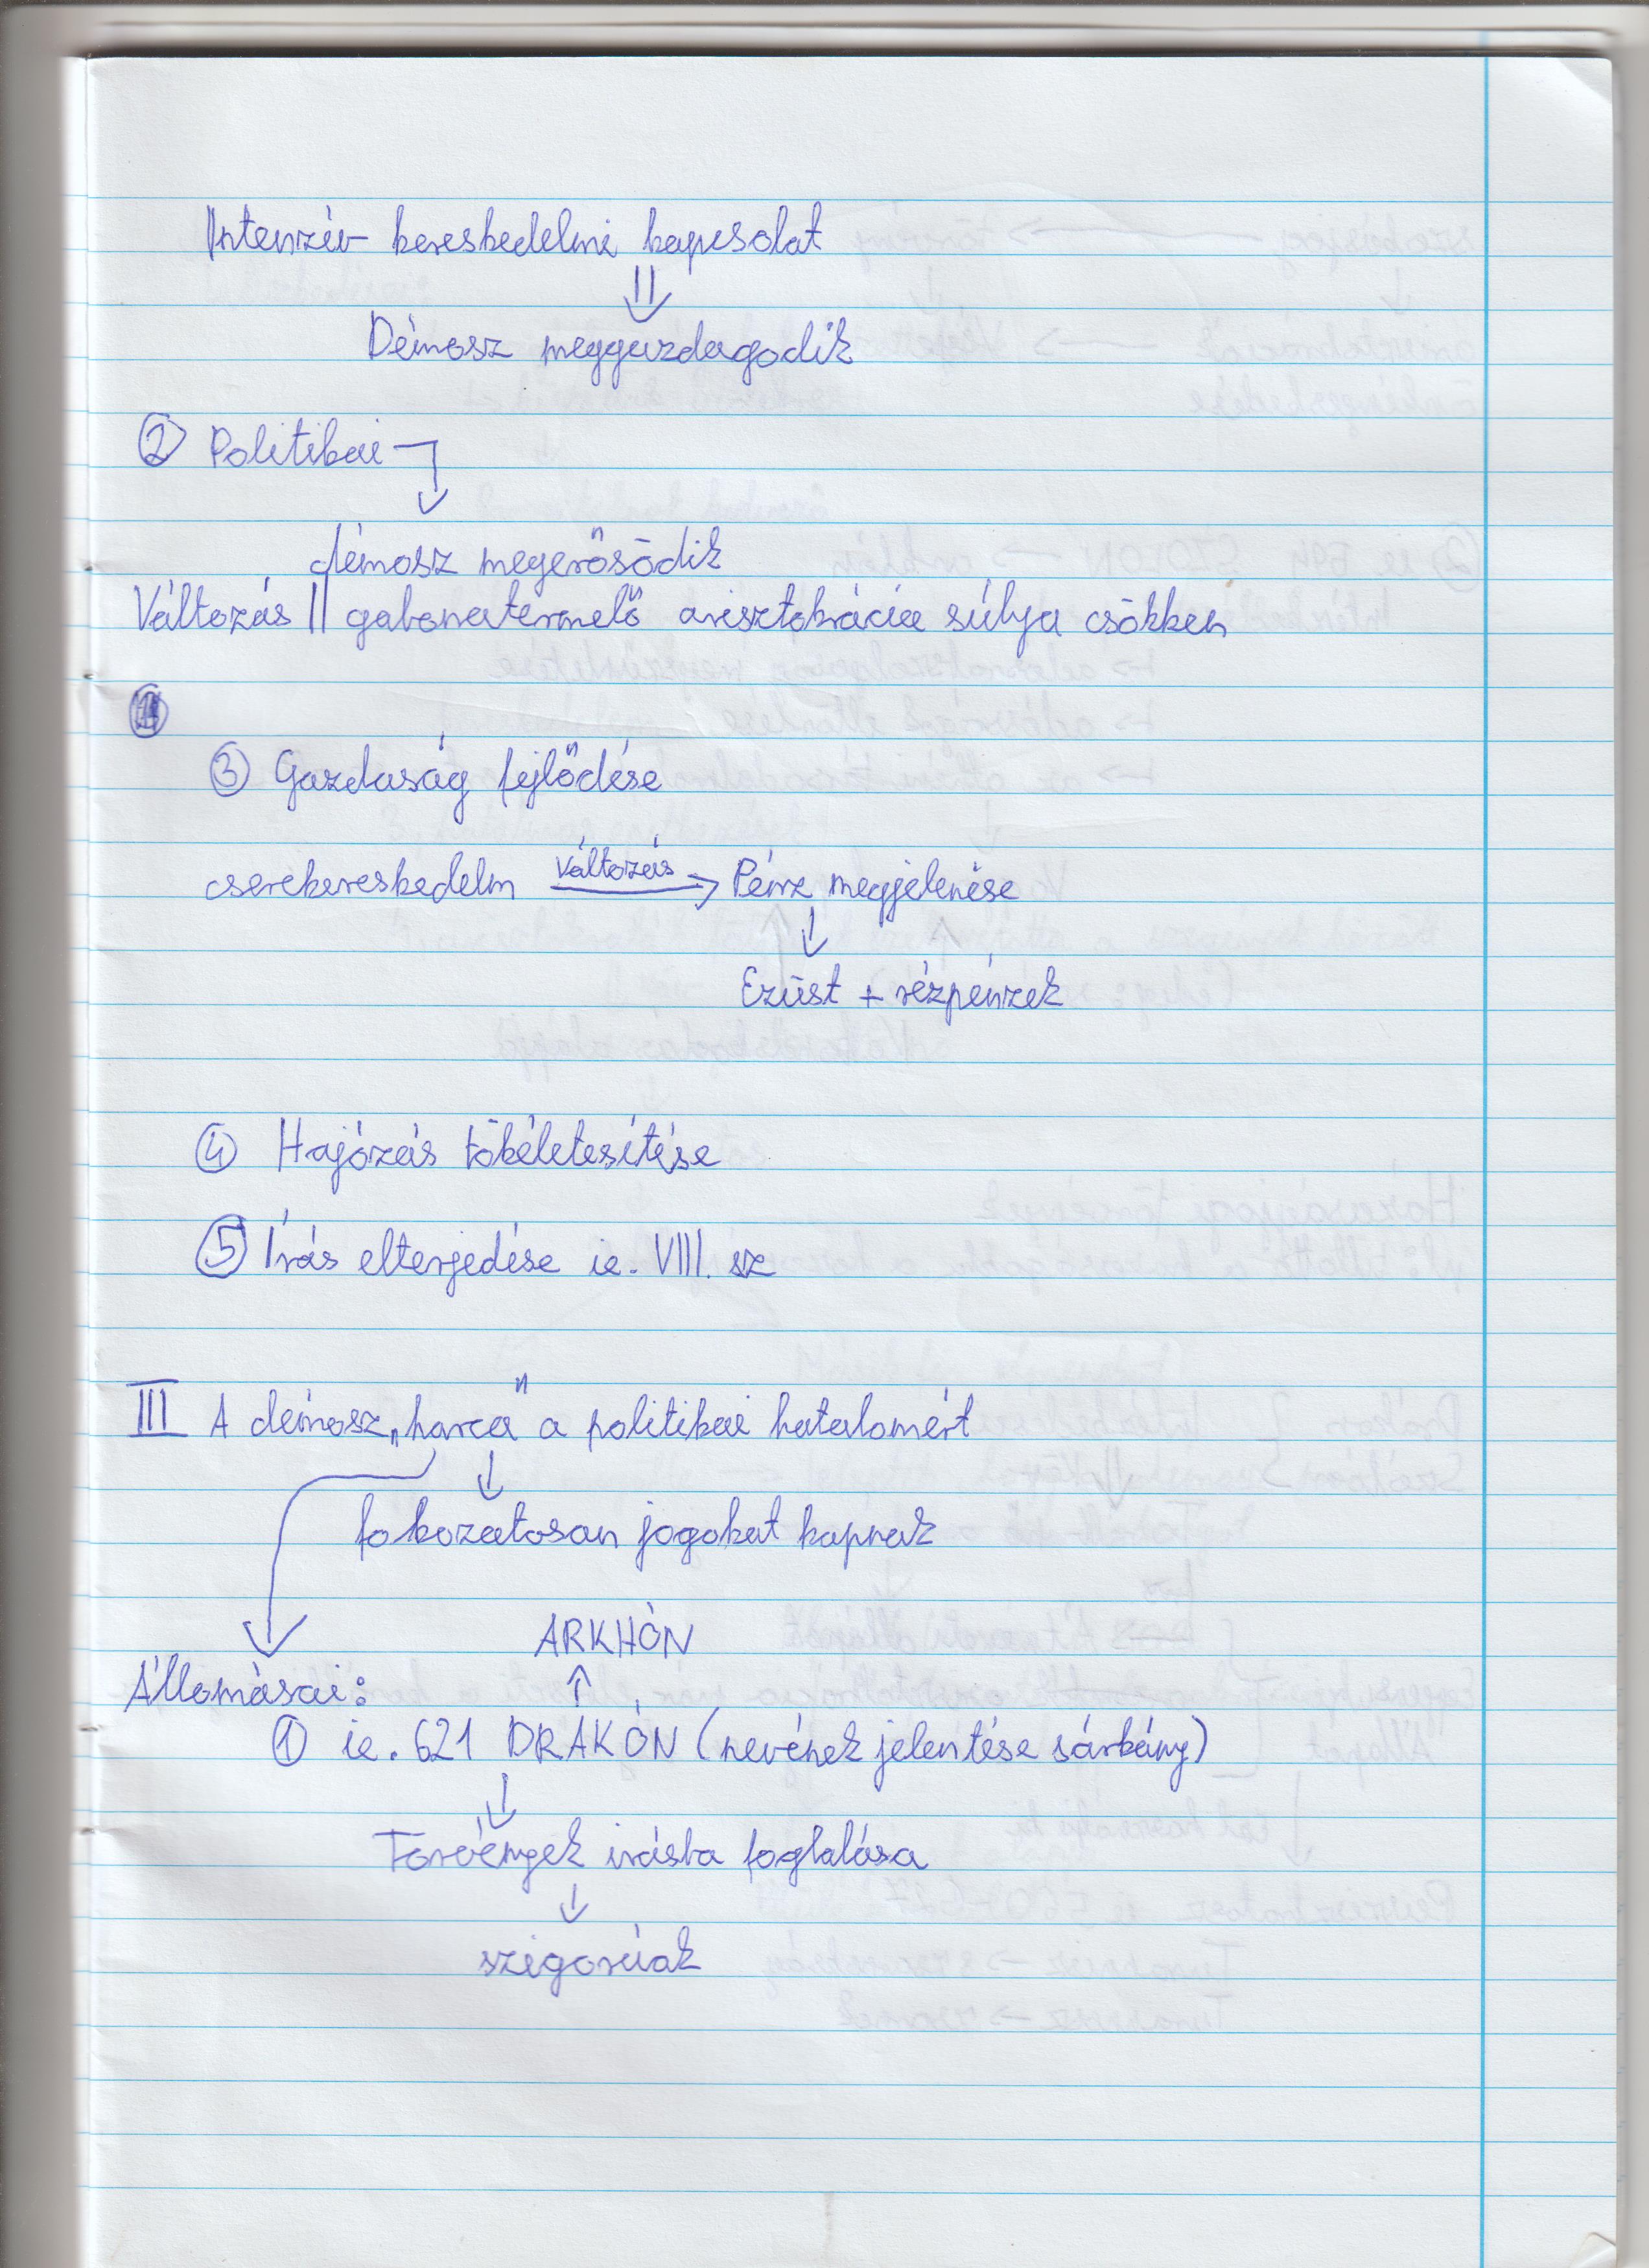 Intenzív kereskedelmi kapcsolat
⇓
Démosz meggazdagodik
② Politikai
↓
démosz megerősödik
Változás || gabonatermelő arisztokrácia súlya csökken
③ Gazdaság fejlődése
cserekereskedelm változás → Pénz megjelenése
↓
Ezüst + rézpénzek
④ Hajózás tökéletesítése
⑤ Írás elterjedése ie. VIII. sz
III A démosz „harca" a politikai hatalomért
↓
fokozatosan jogokat kapnak
ARKHÓN
Állomásai: ↑
① ie. 621 DRAKÓN (nevének jelentése sárkány)
↓
Törvények írásba foglalása
↓
szigorúak